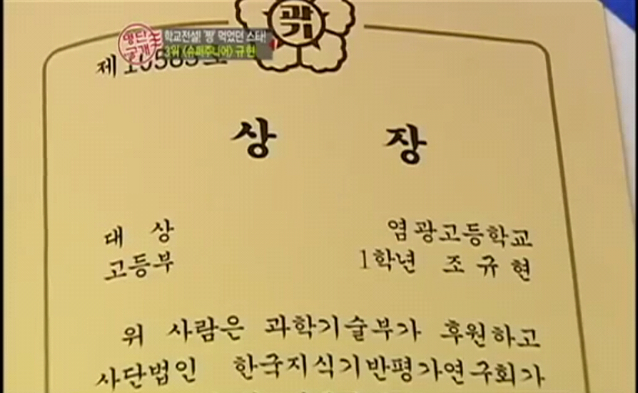 명단공개
학교전설! '짱' 먹었던 스타!
3위 <슈퍼주니어> 규현
과기
제 10585호
상 장
대 상 염광고등학교
고등부 1학년 조규현
위 사람은 과학기술부가 후원하고
사단법인 한국지식기반평가연구회가